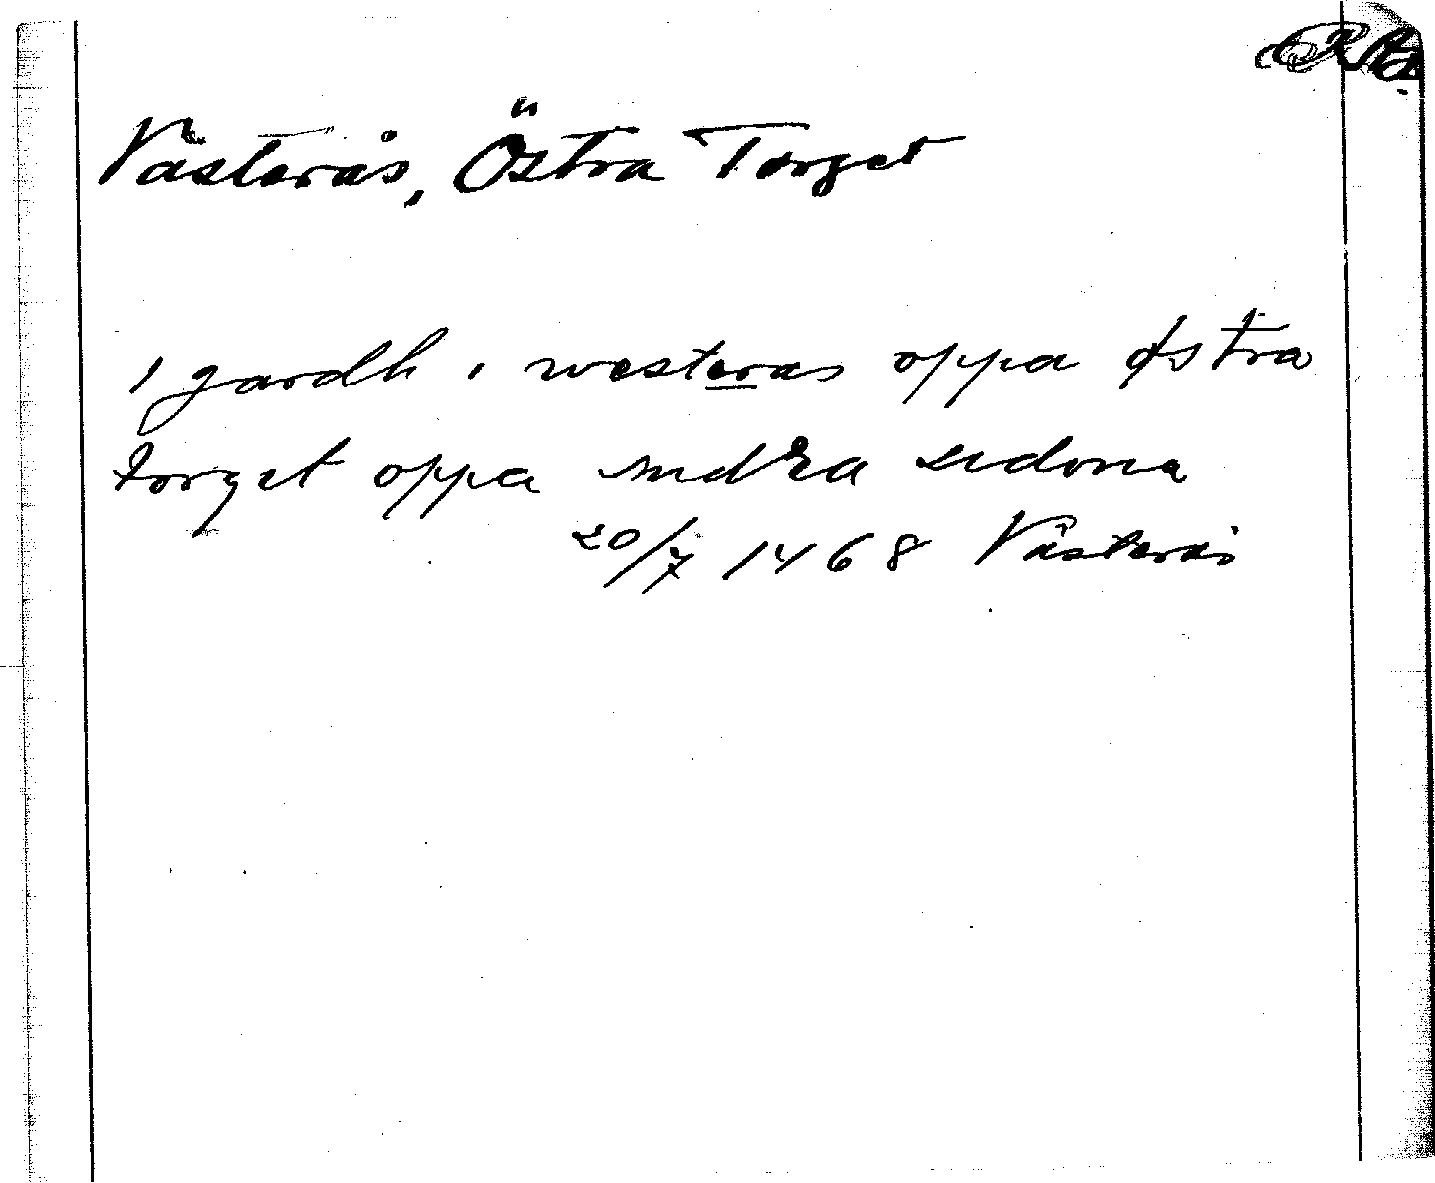 Västerås, Östra Torget
1 gardh i westeras oppa østra
torget oppa sudra sidona
20/7 1468 Västerås